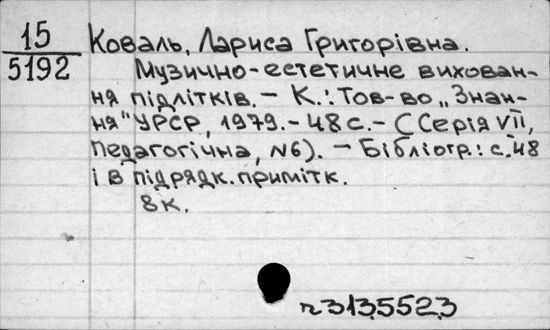 15
5192
Коваль, Лариса Григорівна.
Музично-естетичне вихован-
ня підлітків. - К.: Тов-во „Знан-
ня" УРСР, 1979. - 48 с. - (Серія VII,
Педагогічна, №6). - Бібліогр.: с. 48
і в підрядк. примітк.
8к.
п3135523